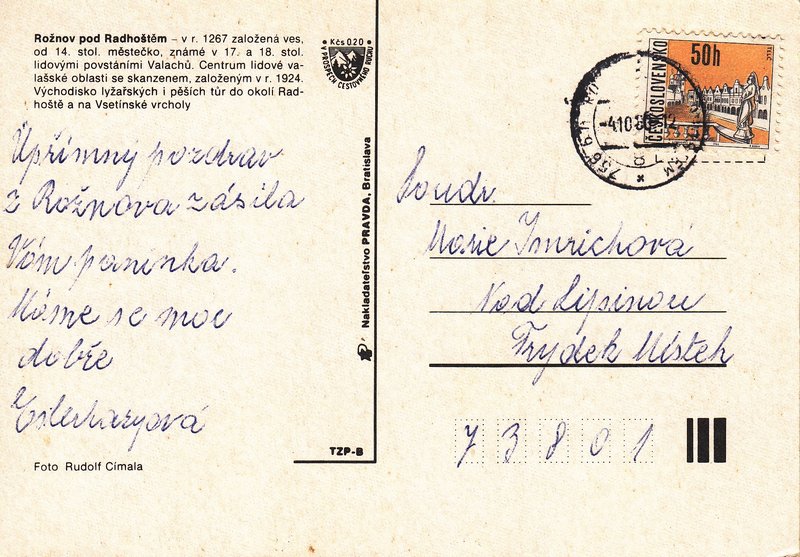 Rožnov pod Radhoštěm – v r. 1267 založená ves,
od 14. stol. městečko, známé v 17. a 18. stol.
lidovými povstáními Valachů. Centrum lidové va-
lašské oblasti se skanzenem, založeným v r. 1924.
Východisko lyžařských i pěších túr do okolí Rad-
hoště a na Vsetínské vrcholy
Kčs 0,20
V PROSPECH CESTOVNÉHO RUCHU
Úpřímný pozdrav
z Rožnova zásila
Vám panínka.
Máme se moc
dobře
Esterházyová
Foto Rudolf Címala
Nakladateľstvo PRAVDA, Bratislava
TZP-B
ČESKOSLOVENSKO
50h
TELČ
756 61
-4.10.8
Soudr.
Marie Imrichová
Nad Lipinou
Frýdek Místek
73801